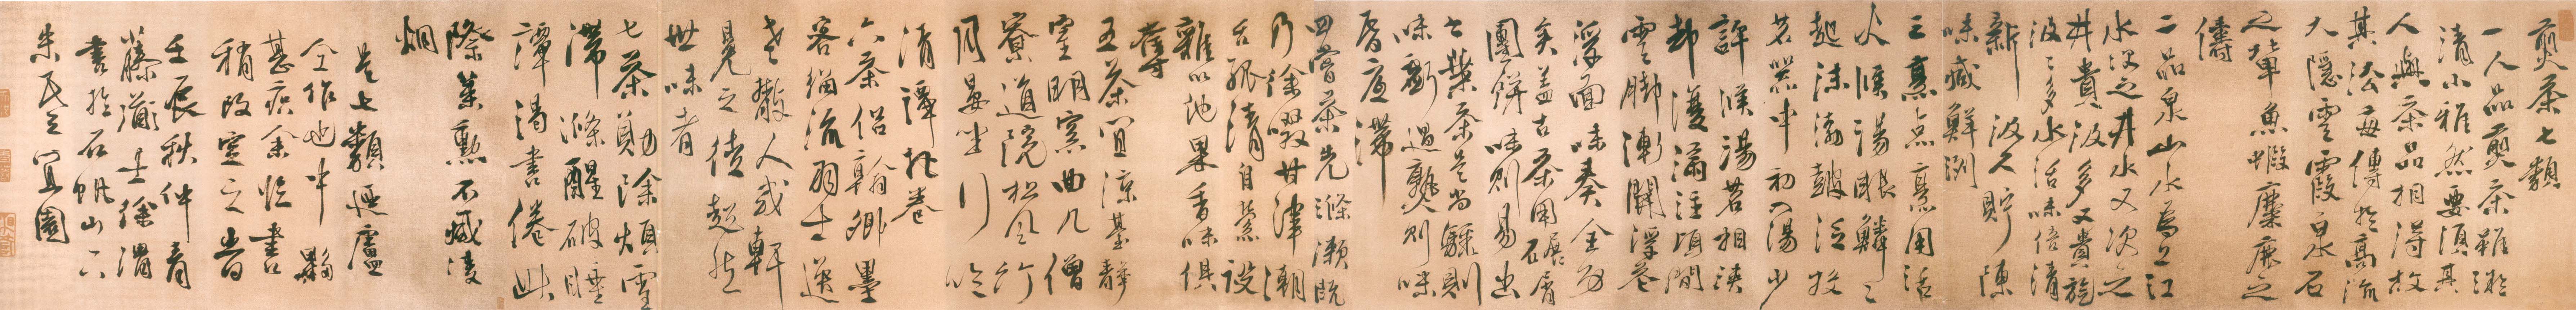 煎茶七類
一人品煎茶雖微
清小雅然要須其
人與茶品相得故
其法每傳於高流
大隱雲霞泉石
之輩魚蝦麋鹿之
儔
二品泉山水為上江
水次之井水又次之
井貴汲多又貴旋
汲汲多水活味倍清
新汲久貯陳
味減鮮冽
三烹點烹用活
火候湯眼鱗鱗
起沫浡鼓泛投
茗器中初入湯少
許候湯茗相浹
卻復滿注頃間
雲腳漸開浮花
浮面味奏全功
矣蓋古茶用碾屑
團餅味則易出
今葉茶是尚驟則
味虧過熟則味
昏底滯
四嘗茶先滌漱既
乃徐啜甘津潮
舌孤清自縈設
雜以他果香味俱
奪
五茶宜涼臺靜
室明窗曲几僧
寮道院松風竹
月晏坐行吟
清譚把卷
六茶侶翰卿墨
客緇流羽士逸
老散人或軒
冕之徒超然
世味者
七茶勳除煩雪
滯滌酲破睡
譚渴書倦此
際策勳不減凌
烟
是七類迺盧
仝作也中夥
甚疾余臨書
稍改定之時
壬辰秋仲青
藤道士徐渭
書於石帆山下
朱氏之宜園